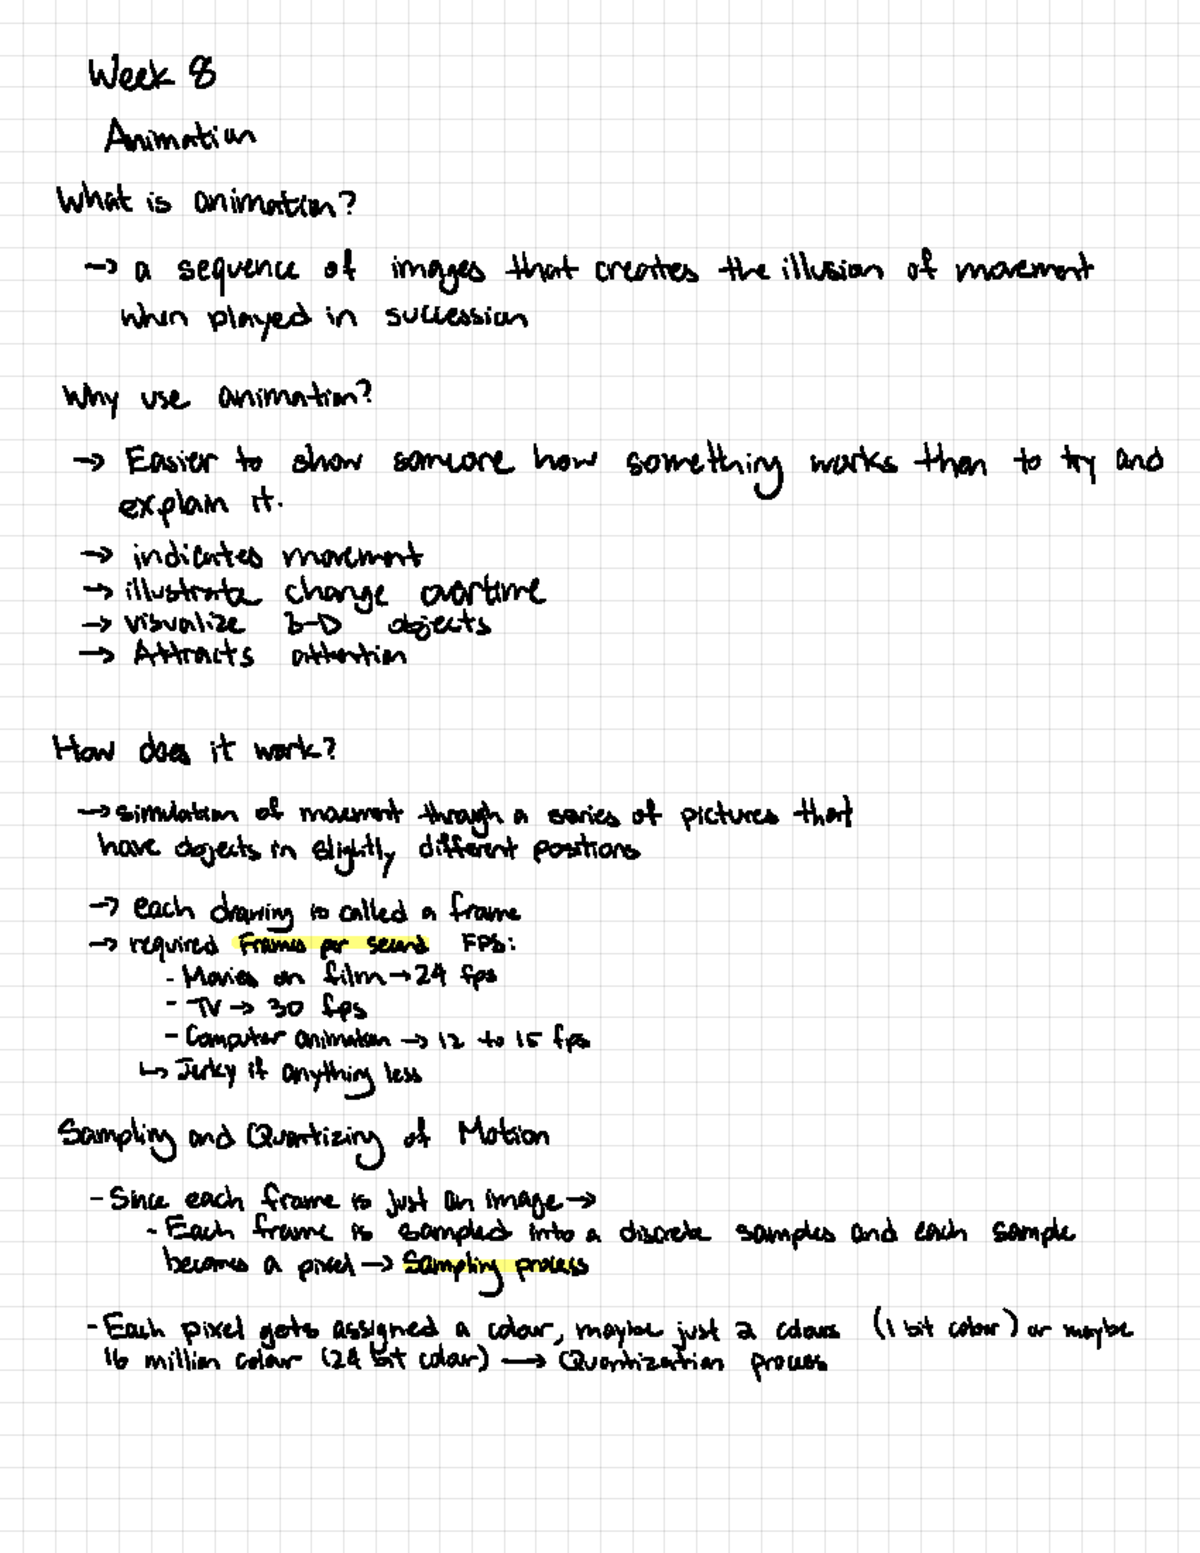 Week 8
Animation
What is animation?
→ a sequence of images that creates the illusion of movement
when played in succession
Why use animation?
→ Easier to show someone how something works then to try and
explain it.
→ indicates movement
→ illustrate change overtime
→ visualize 3-D objects
→ Attracts attention
How does it work?
→ simulation of movement through a series of pictures that
have objects in slightly different positions
→ each drawing is called a frame
→ required Frames per second FPS:
- Movies on film → 24 fps
- TV → 30 fps
- Computer animation → 12 to 15 fps
↳ Jerky if anything less
Sampling and Quantizing of Motion
- Since each frame is just an image →
- Each frame is sampled into a discrete samples and each sample
becomes a pixel → Sampling process
- Each pixel gets assigned a colour, maybe just 2 colours (1 bit colour) or maybe
16 million colour (24 bit colour) → Quantization process